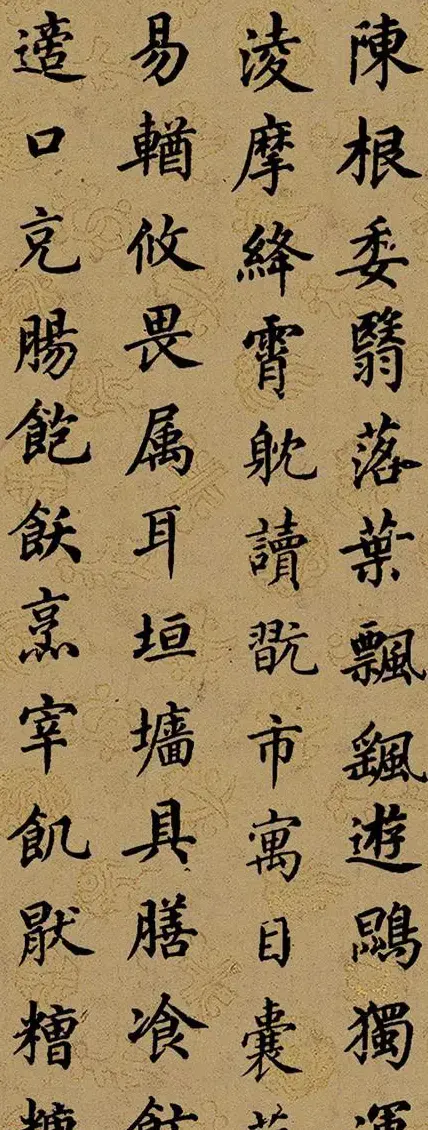 陳根委翳落葉飄颻遊鵾獨運
淩摩絳霄躭讀翫市寓目囊
易輶攸畏属耳垣墻具膳飡飯
適口充腸飽飫烹宰飢厭糟糠